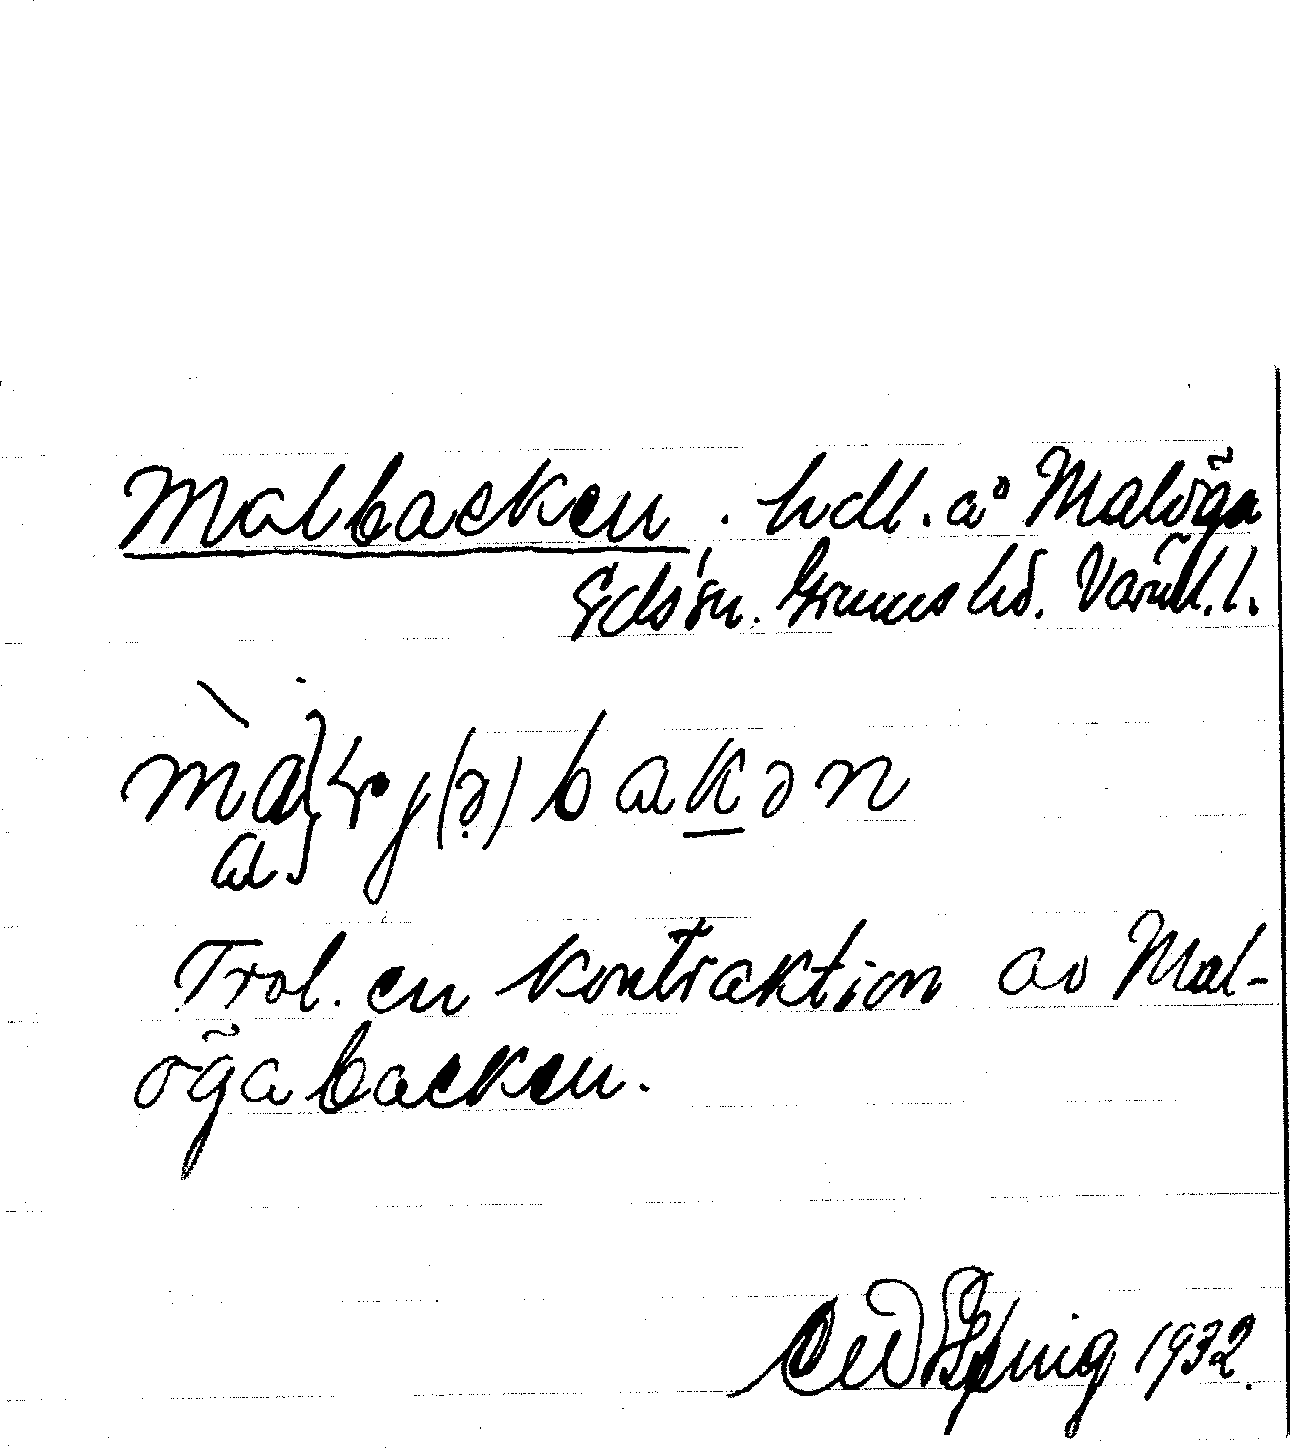 Malbacken. hdl. å Malöga
Eds sn. Grums hd. Värml. l.
bakən
Trol. en kontraktion av Mal-
ögabacken.
1932.